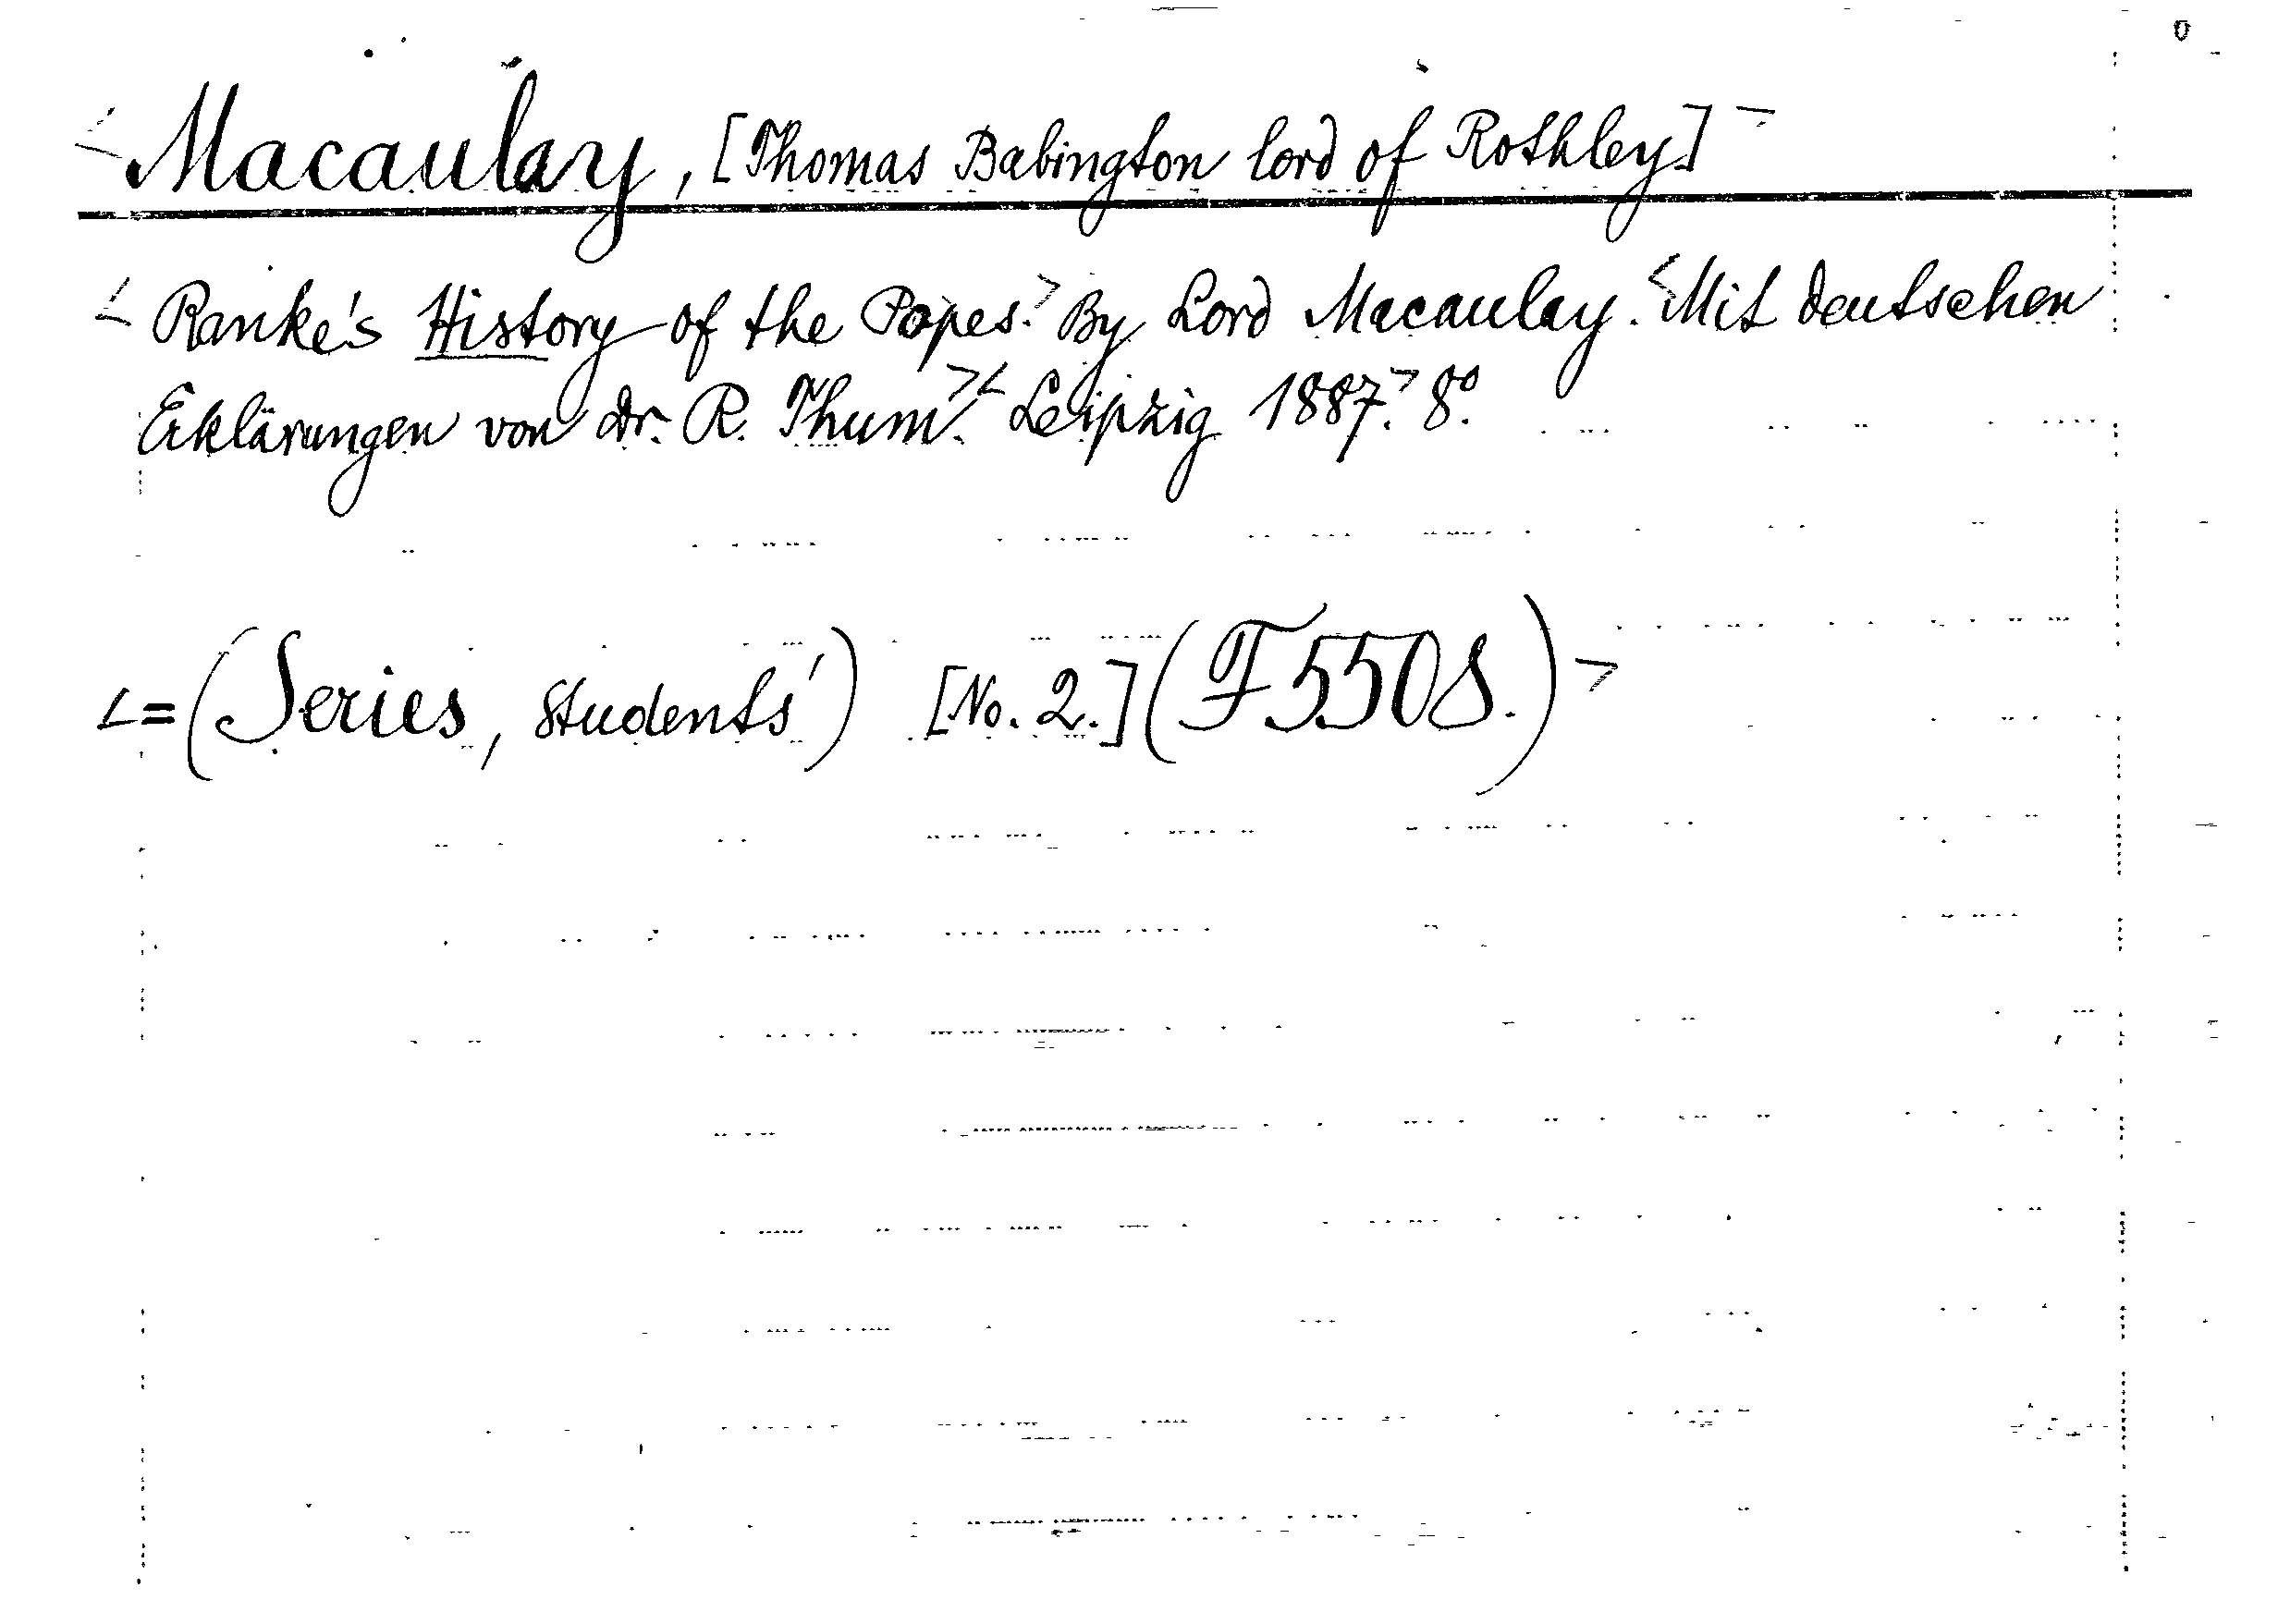 <Macaulay, [Thomas Babington lord of Rothley]>
<Ranke's History of the Popes.> By Lord Macaulay. <Mit deutschen
Erklärungen von Dr. R. Thum.>< Leipzig 1887.> 8º.
<=(Series, students') [No. 2.] (F5508.)>